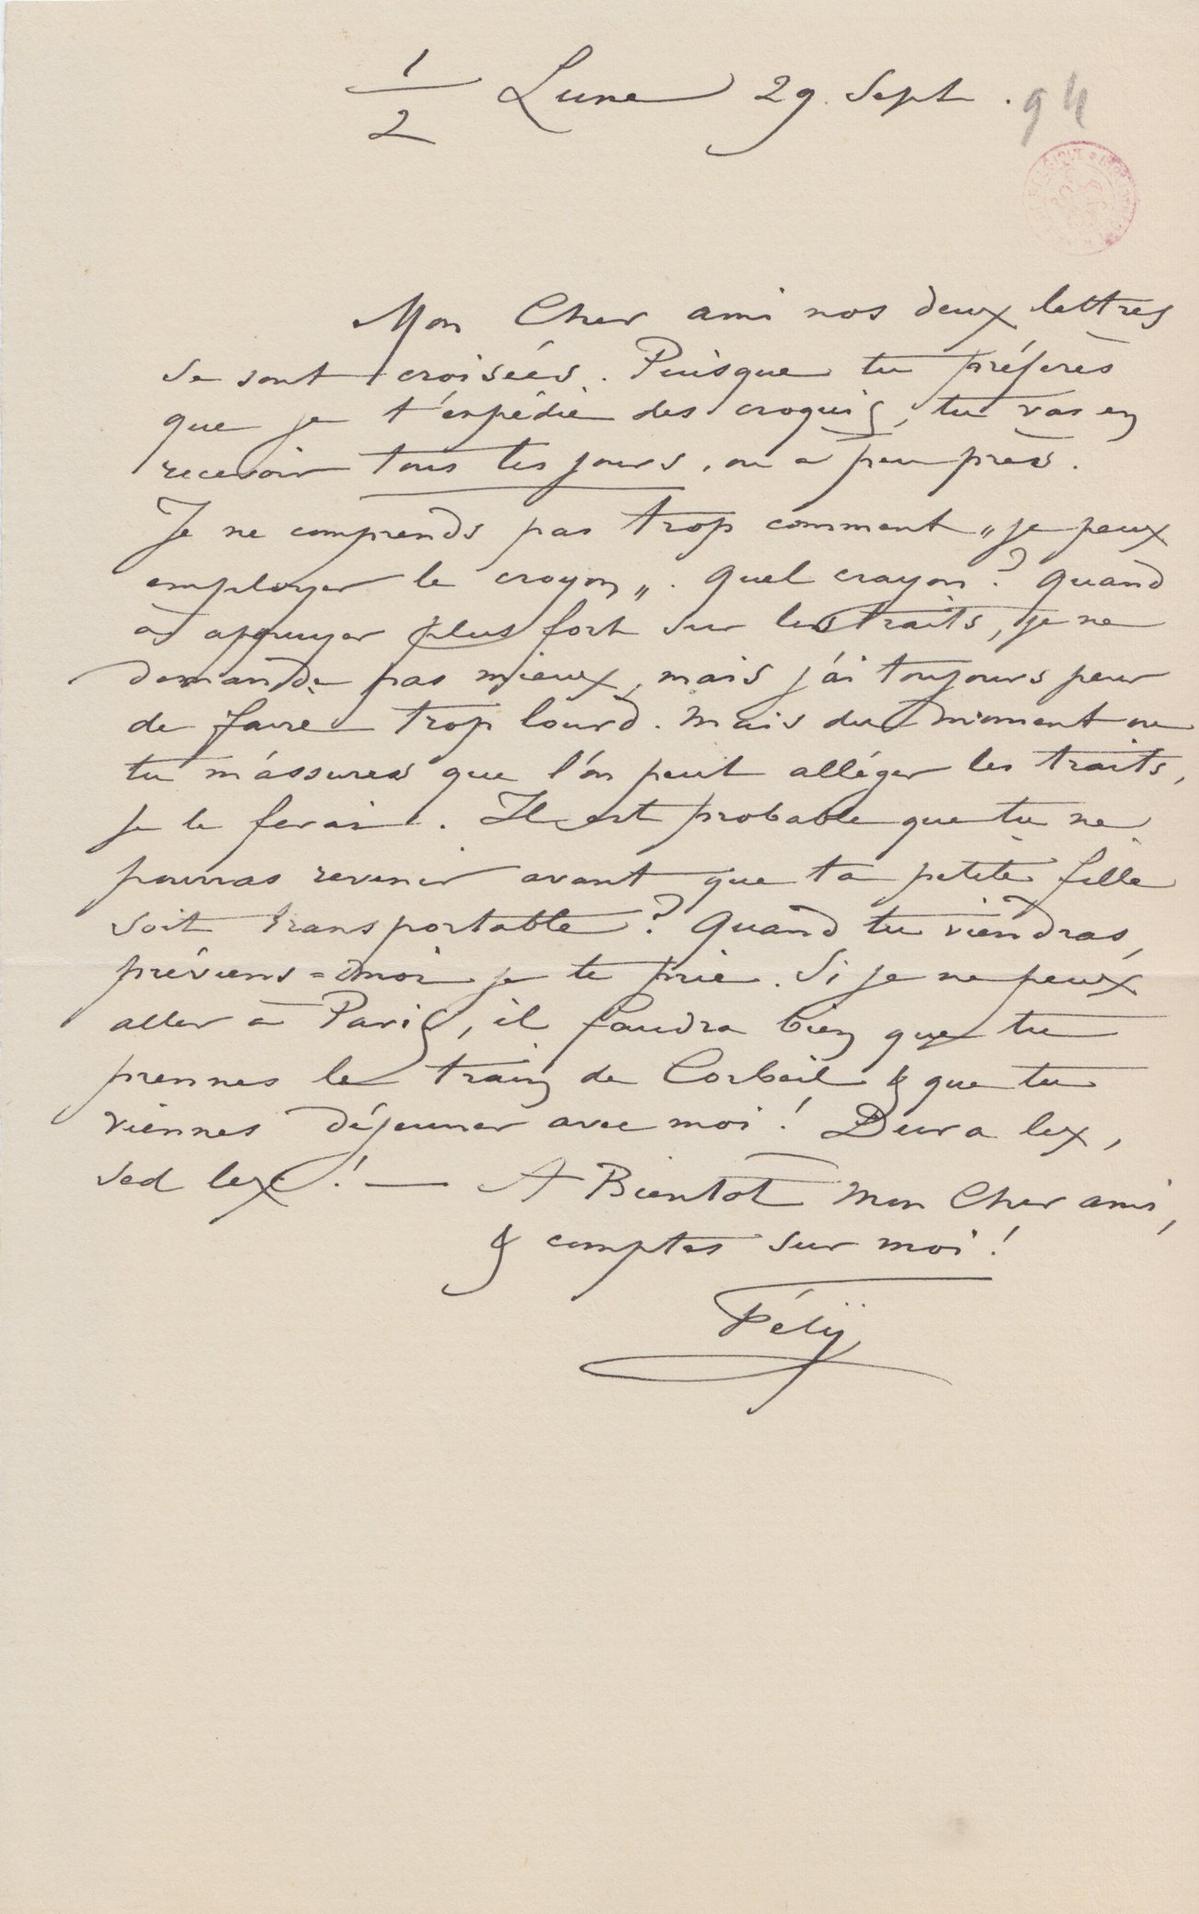 1/2 Lune 29. Sept. 94
Mon Cher ami nos deux lettres
se sont croisées. Puisque tu préferes
que je t'expédie des croquis, tu vas en
recevoir tous les jours, ou à peu près.
Je ne comprends pas trop comment „je peux
employer le crayon„. Quel crayon? Quand
à appuyer plus fort sur les traits, je ne
demande pas mieux, mais j'ai toujours peur
de faire trop lourd. Mais du moment ou
tu m'assures que l'on peut alléger les traits,
je le ferai. Il est probable que tu ne
pourras revenir avant que ta petite fille
soit transportable? Quand tu viendras,
préviens=moi je te prie. Si je ne peux
aller à Paris, il faudra bien que tu
prennes le train de Corbeil & que tu
viennes déjeuner avec moi! Dura lex,
sed lex! — A Bientot Mon Cher ami,
& comptes sur moi!
Fély